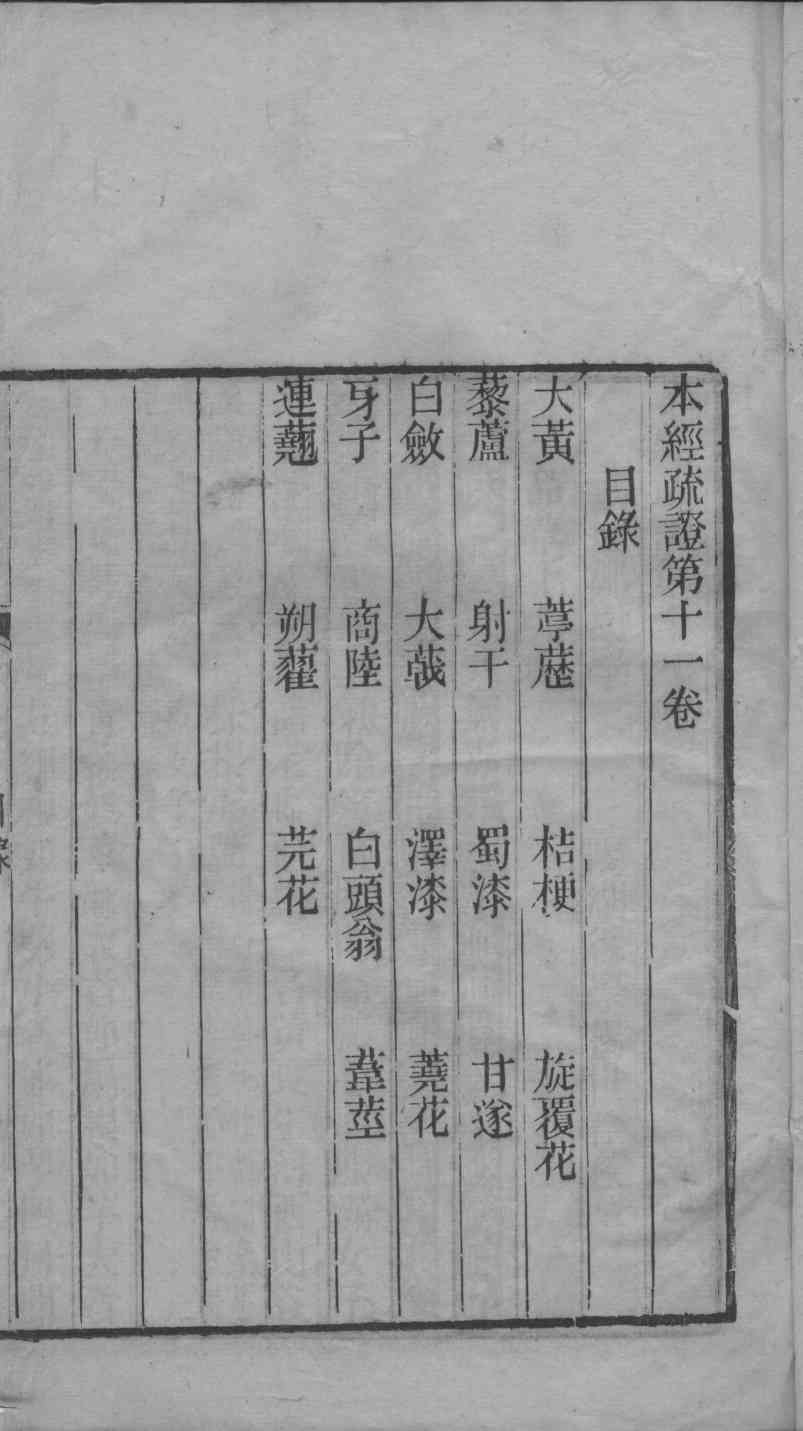 本經疏證第十一卷
目錄
大黃　葶藶　桔梗　旋覆花
藜蘆　射干　蜀漆　甘遂
白斂　大戟　澤漆　蕘花
牙子　商陸　白頭翁　葦莖
連翹　朔藋　芫花